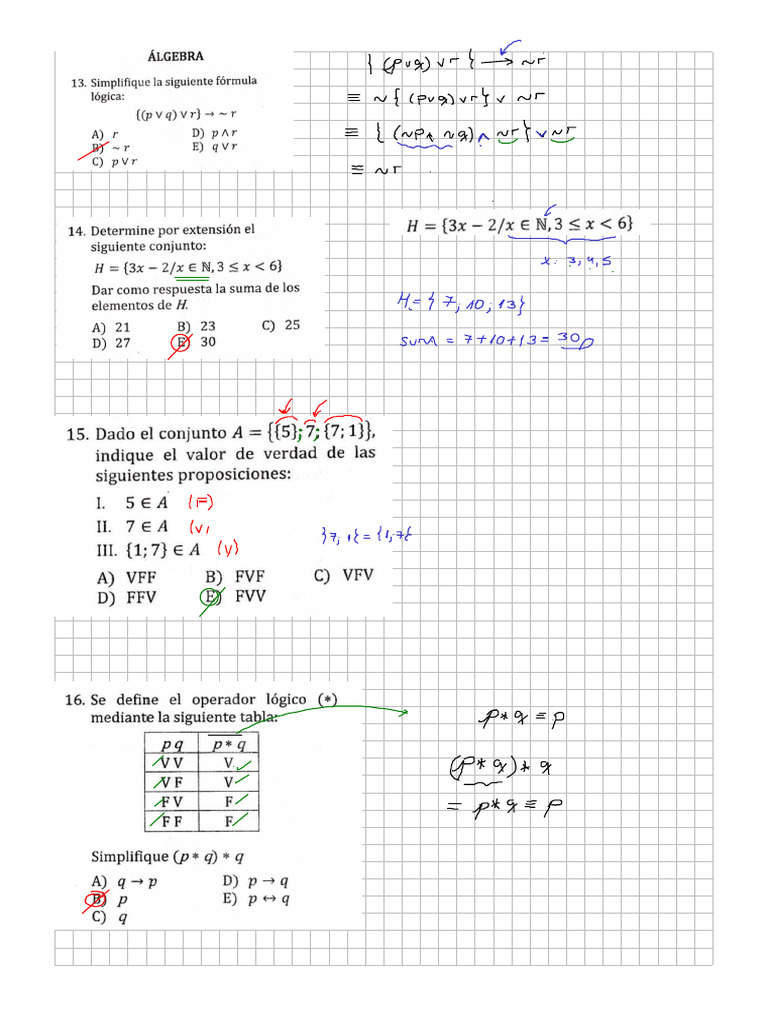 ÁLGEBRA
13. Simplifique la siguiente fórmula
lógica:
{(p ∨ q) ∨ r} → ~ r
A) r D) p ∧ r
B) ~ r E) q ∨ r
C) p ∨ r
{ (p∨q) ∨ r } → ~r
≡ ~{ (p∨q) ∨ r } ∨ ~r
≡ { (~p ∧ ~q) ∧ ~r } ∨ ~r
≡ ~r
14. Determine por extensión el
siguiente conjunto:
H = {3x − 2/x ∈ ℕ, 3 ≤ x < 6}
Dar como respuesta la suma de los
elementos de H.
A) 21 B) 23 C) 25
D) 27 E) 30
H = {3x − 2/x ∈ ℕ, 3 ≤ x < 6}
x: 3, 4, 5
H = { 7; 10; 13}
SUMA = 7+10+13 = 30
15. Dado el conjunto A = {{5}; 7; {7; 1}},
indique el valor de verdad de las
siguientes proposiciones:
I. 5 ∈ A (F)
II. 7 ∈ A (V)
III. {1; 7} ∈ A (V)
{7; 1} = {1, 7}
A) VFF B) FVF C) VFV
D) FFV E) FVV
16. Se define el operador lógico (*)
mediante la siguiente tabla:
p q p * q
V V V
V F V
F V F
F F F
Simplifique (p * q) * q
A) q → p D) p → q
B) p E) p ↔ q
C) q
p * q ≡ p
(p * q) * q
= p * q ≡ p